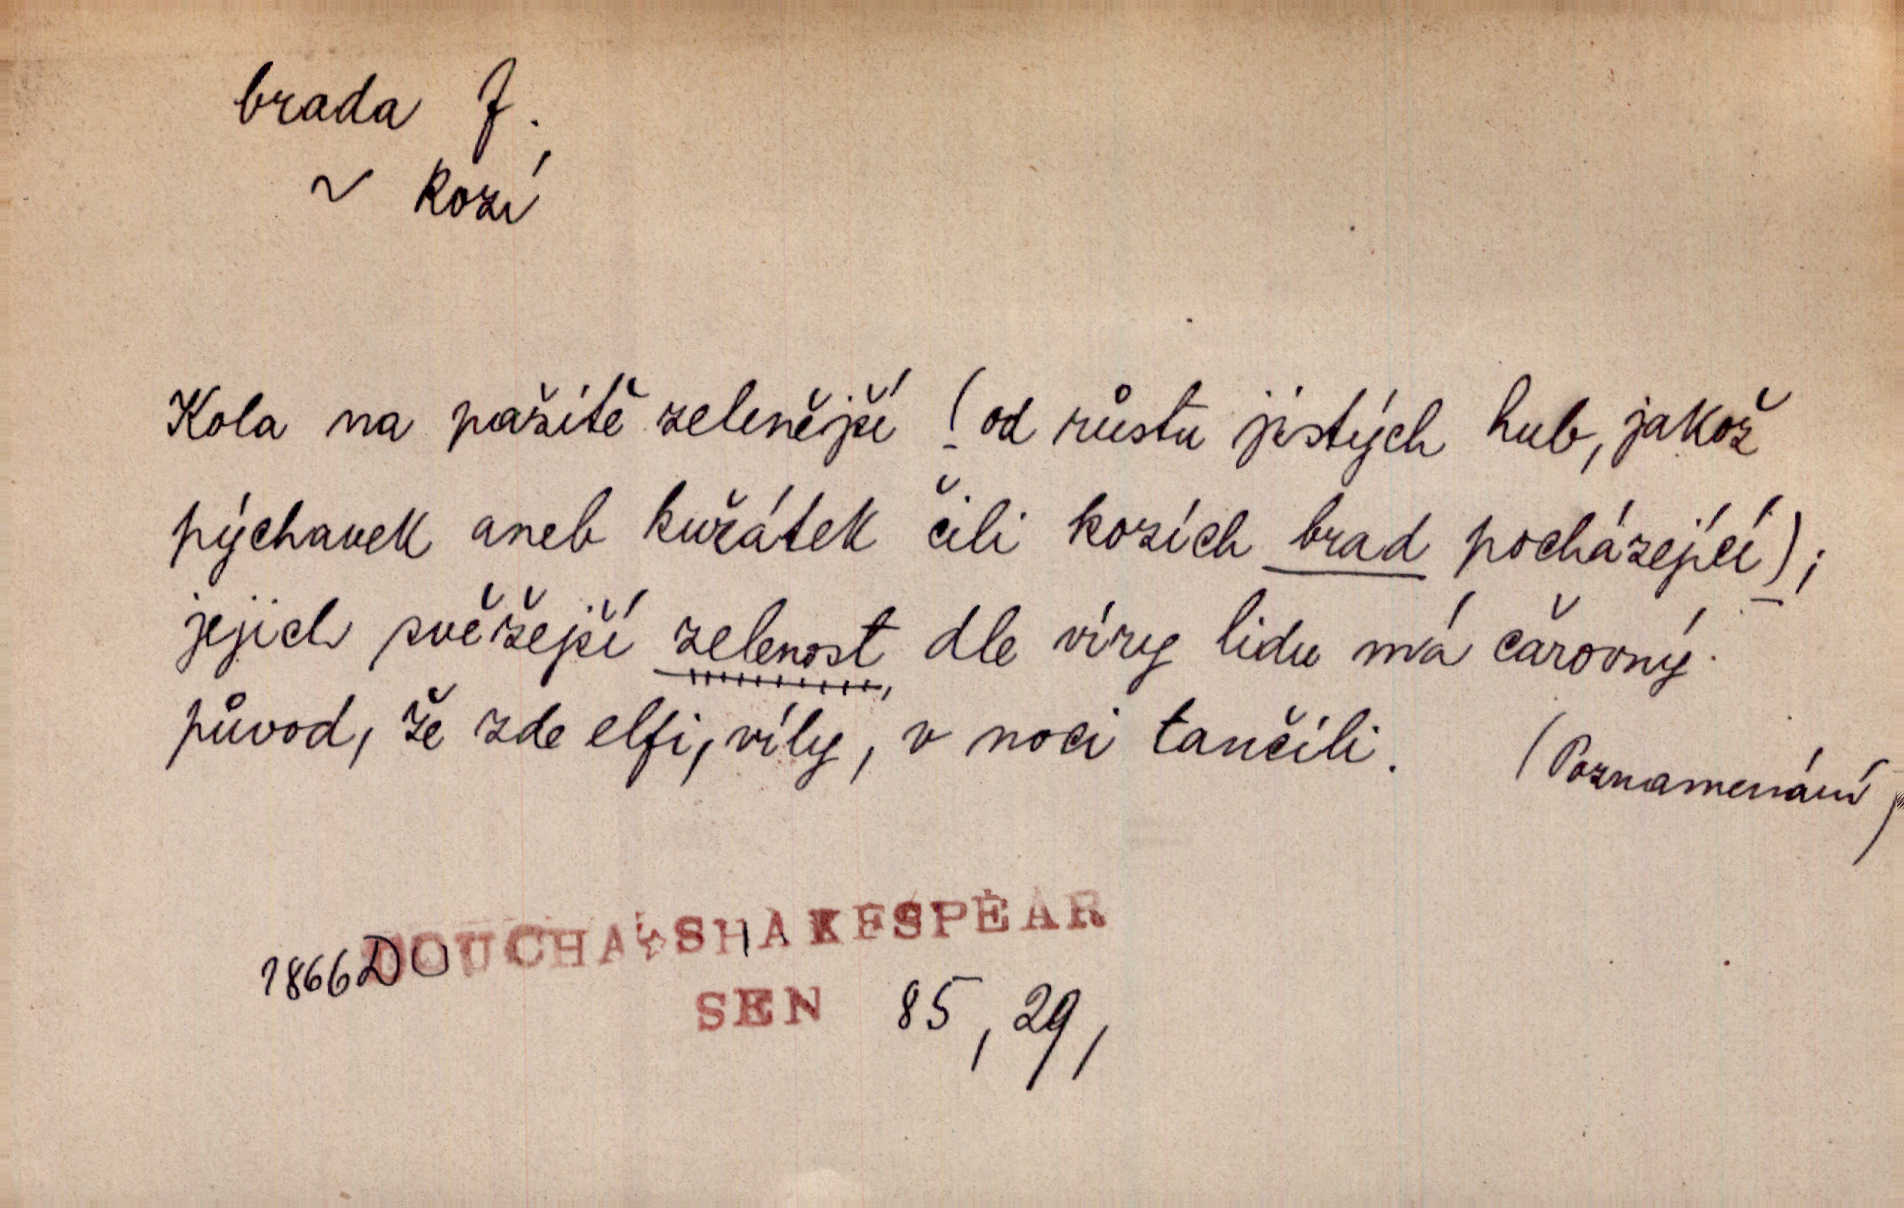 brada f.,
~ kozí
Kola na pažitě zelenější (od růstu jistých hub, jakož
pýchavek aneb kuřátek čili kozích brad pocházející);
jejich svěžejší zelenost, dle víry lidu má čarovný
původ, že zde elfi, víly, v noci tančili. (Poznamenání)
1866 DOUCHA-SHAKESPEAR
SEN 85, 29,